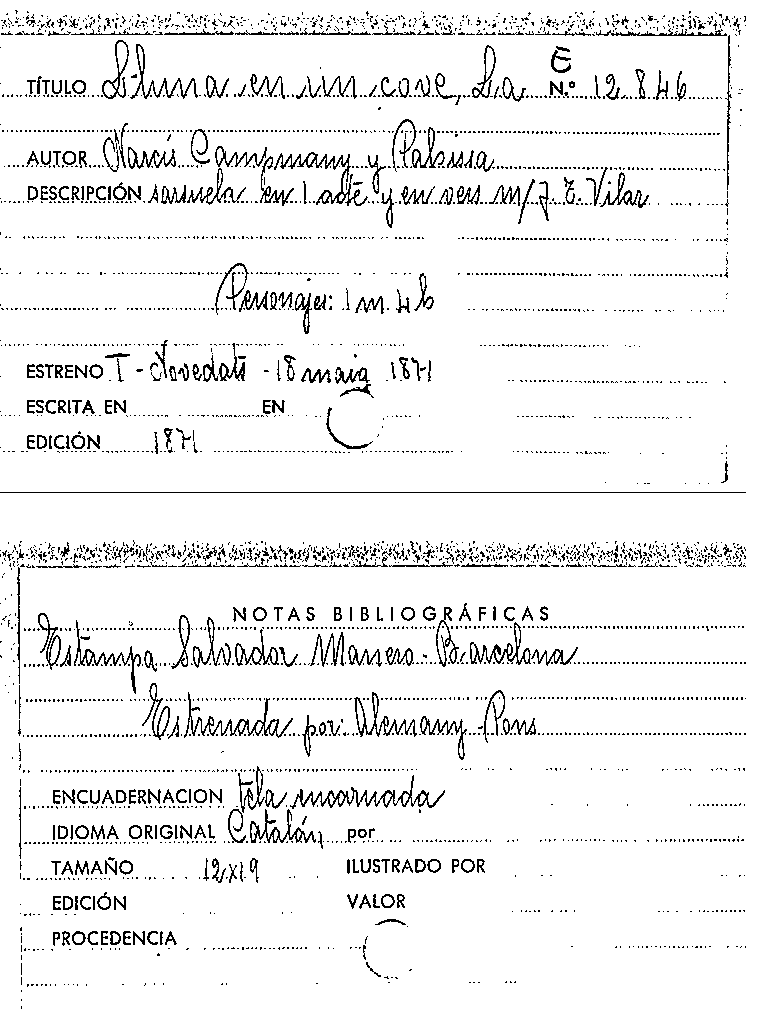 E
TÍTULO Lluna en un cove, La N.º 12.846
AUTOR Narcís Campmany y Pahissa
DESCRIPCIÓN sarsuela en 1 acte y en vers m/ J. T. Vilar
Personajes: 1 m. 4 h
ESTRENO T - Novedats - 18 maig 1871
ESCRITA EN EN
EDICIÓN 1871
NOTAS BIBLIOGRÁFICAS
Estampa Salvador Manero - Barcelona
Estrenada por: Alemany - Pons
ENCUADERNACION tela encarnada
IDIOMA ORIGINAL Catalán por
TAMAÑO 12x19 ILUSTRADO POR
EDICIÓN VALOR
PROCEDENCIA